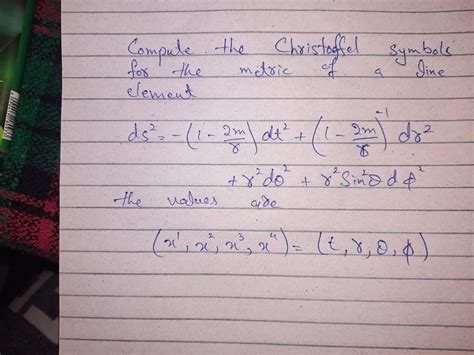 Compute the Christoffel symbols
for the metric of a line
element
ds² = -(1 - 2m/r) dt² + (1 - 2m/r)⁻¹ dr²
+ r²dθ² + r² Sin²θ dϕ²
the values are
(x¹, x², x³, x⁴) = (t, r, θ, ϕ)